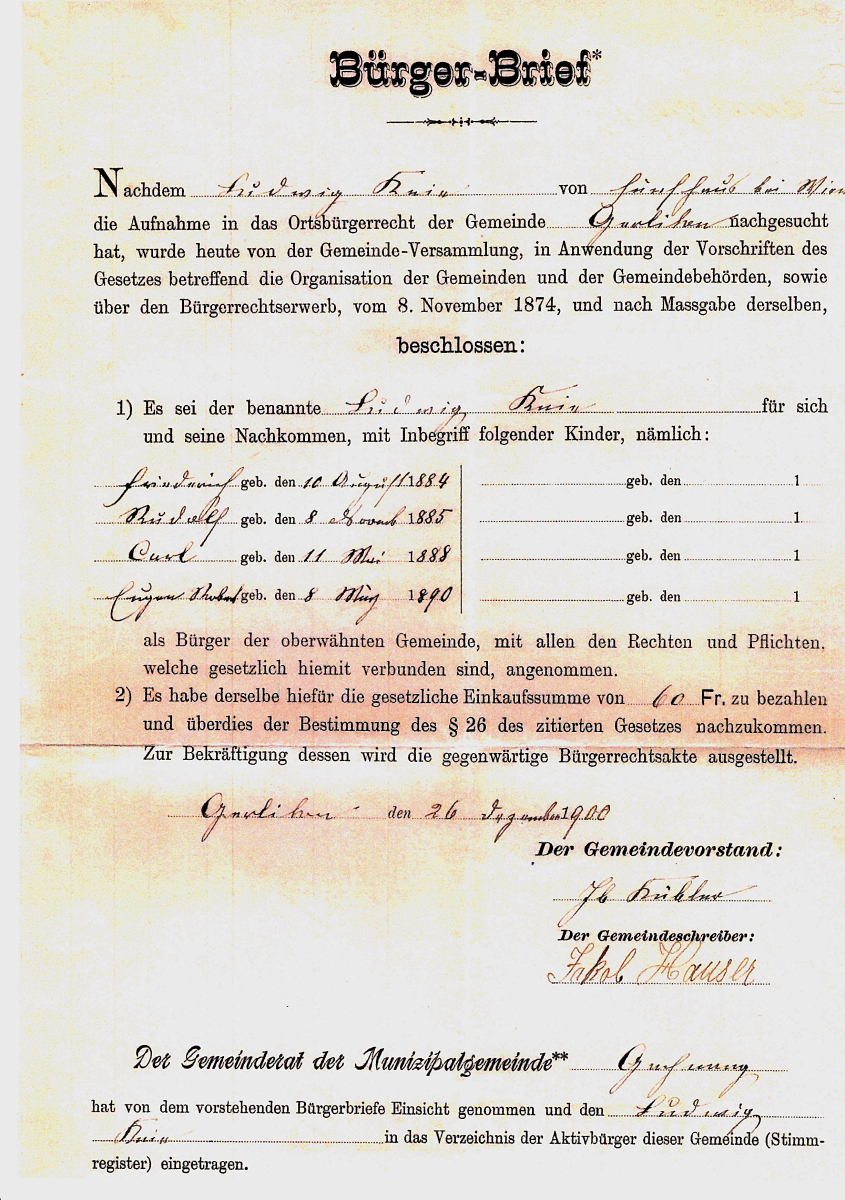 Bürger-Brief*
Nachdem Ludwig Knie von Fünfhaus bei Wien
die Aufnahme in das Ortsbürgerrecht der Gemeinde Gerliken nachgesucht
hat, wurde heute von der Gemeinde-Versammlung, in Anwendung der Vorschriften des
Gesetzes betreffend die Organisation der Gemeinden und der Gemeindebehörden, sowie
über den Bürgerrechtserwerb, vom 8. November 1874, und nach Massgabe derselben,
beschlossen:
1) Es sei der benannte Ludwig Knie für sich
und seine Nachkommen, mit Inbegriff folgender Kinder, nämlich:
Friederich geb. den 10 August 1884 geb. den 1
Rudolf geb. den 8 Novemb 1885 geb. den 1
Carl geb. den 11 Mai 1888 geb. den 1
Eugen geb. den 8 März 1890 geb. den 1
als Bürger der oberwähnten Gemeinde, mit allen den Rechten und Pflichten,
welche gesetzlich hiemit verbunden sind, angenommen.
2) Es habe derselbe hiefür die gesetzliche Einkaufssumme von 60 Fr. zu bezahlen
und überdies der Bestimmung des § 26 des zitierten Gesetzes nachzukommen.
Zur Bekräftigung dessen wird die gegenwärtige Bürgerrechtsakte ausgestellt.
Gerliken den 26 Dezember 1900
Der Gemeindevorstand:
Jb Kübler
Der Gemeindeschreiber:
Jakob Hauser
Der Gemeinderat der Munizipalgemeinde** Gachnang
hat von dem vorstehenden Bürgerbriefe Einsicht genommen und den Ludwig
Knie in das Verzeichnis der Aktivbürger dieser Gemeinde (Stimm-
register) eingetragen.